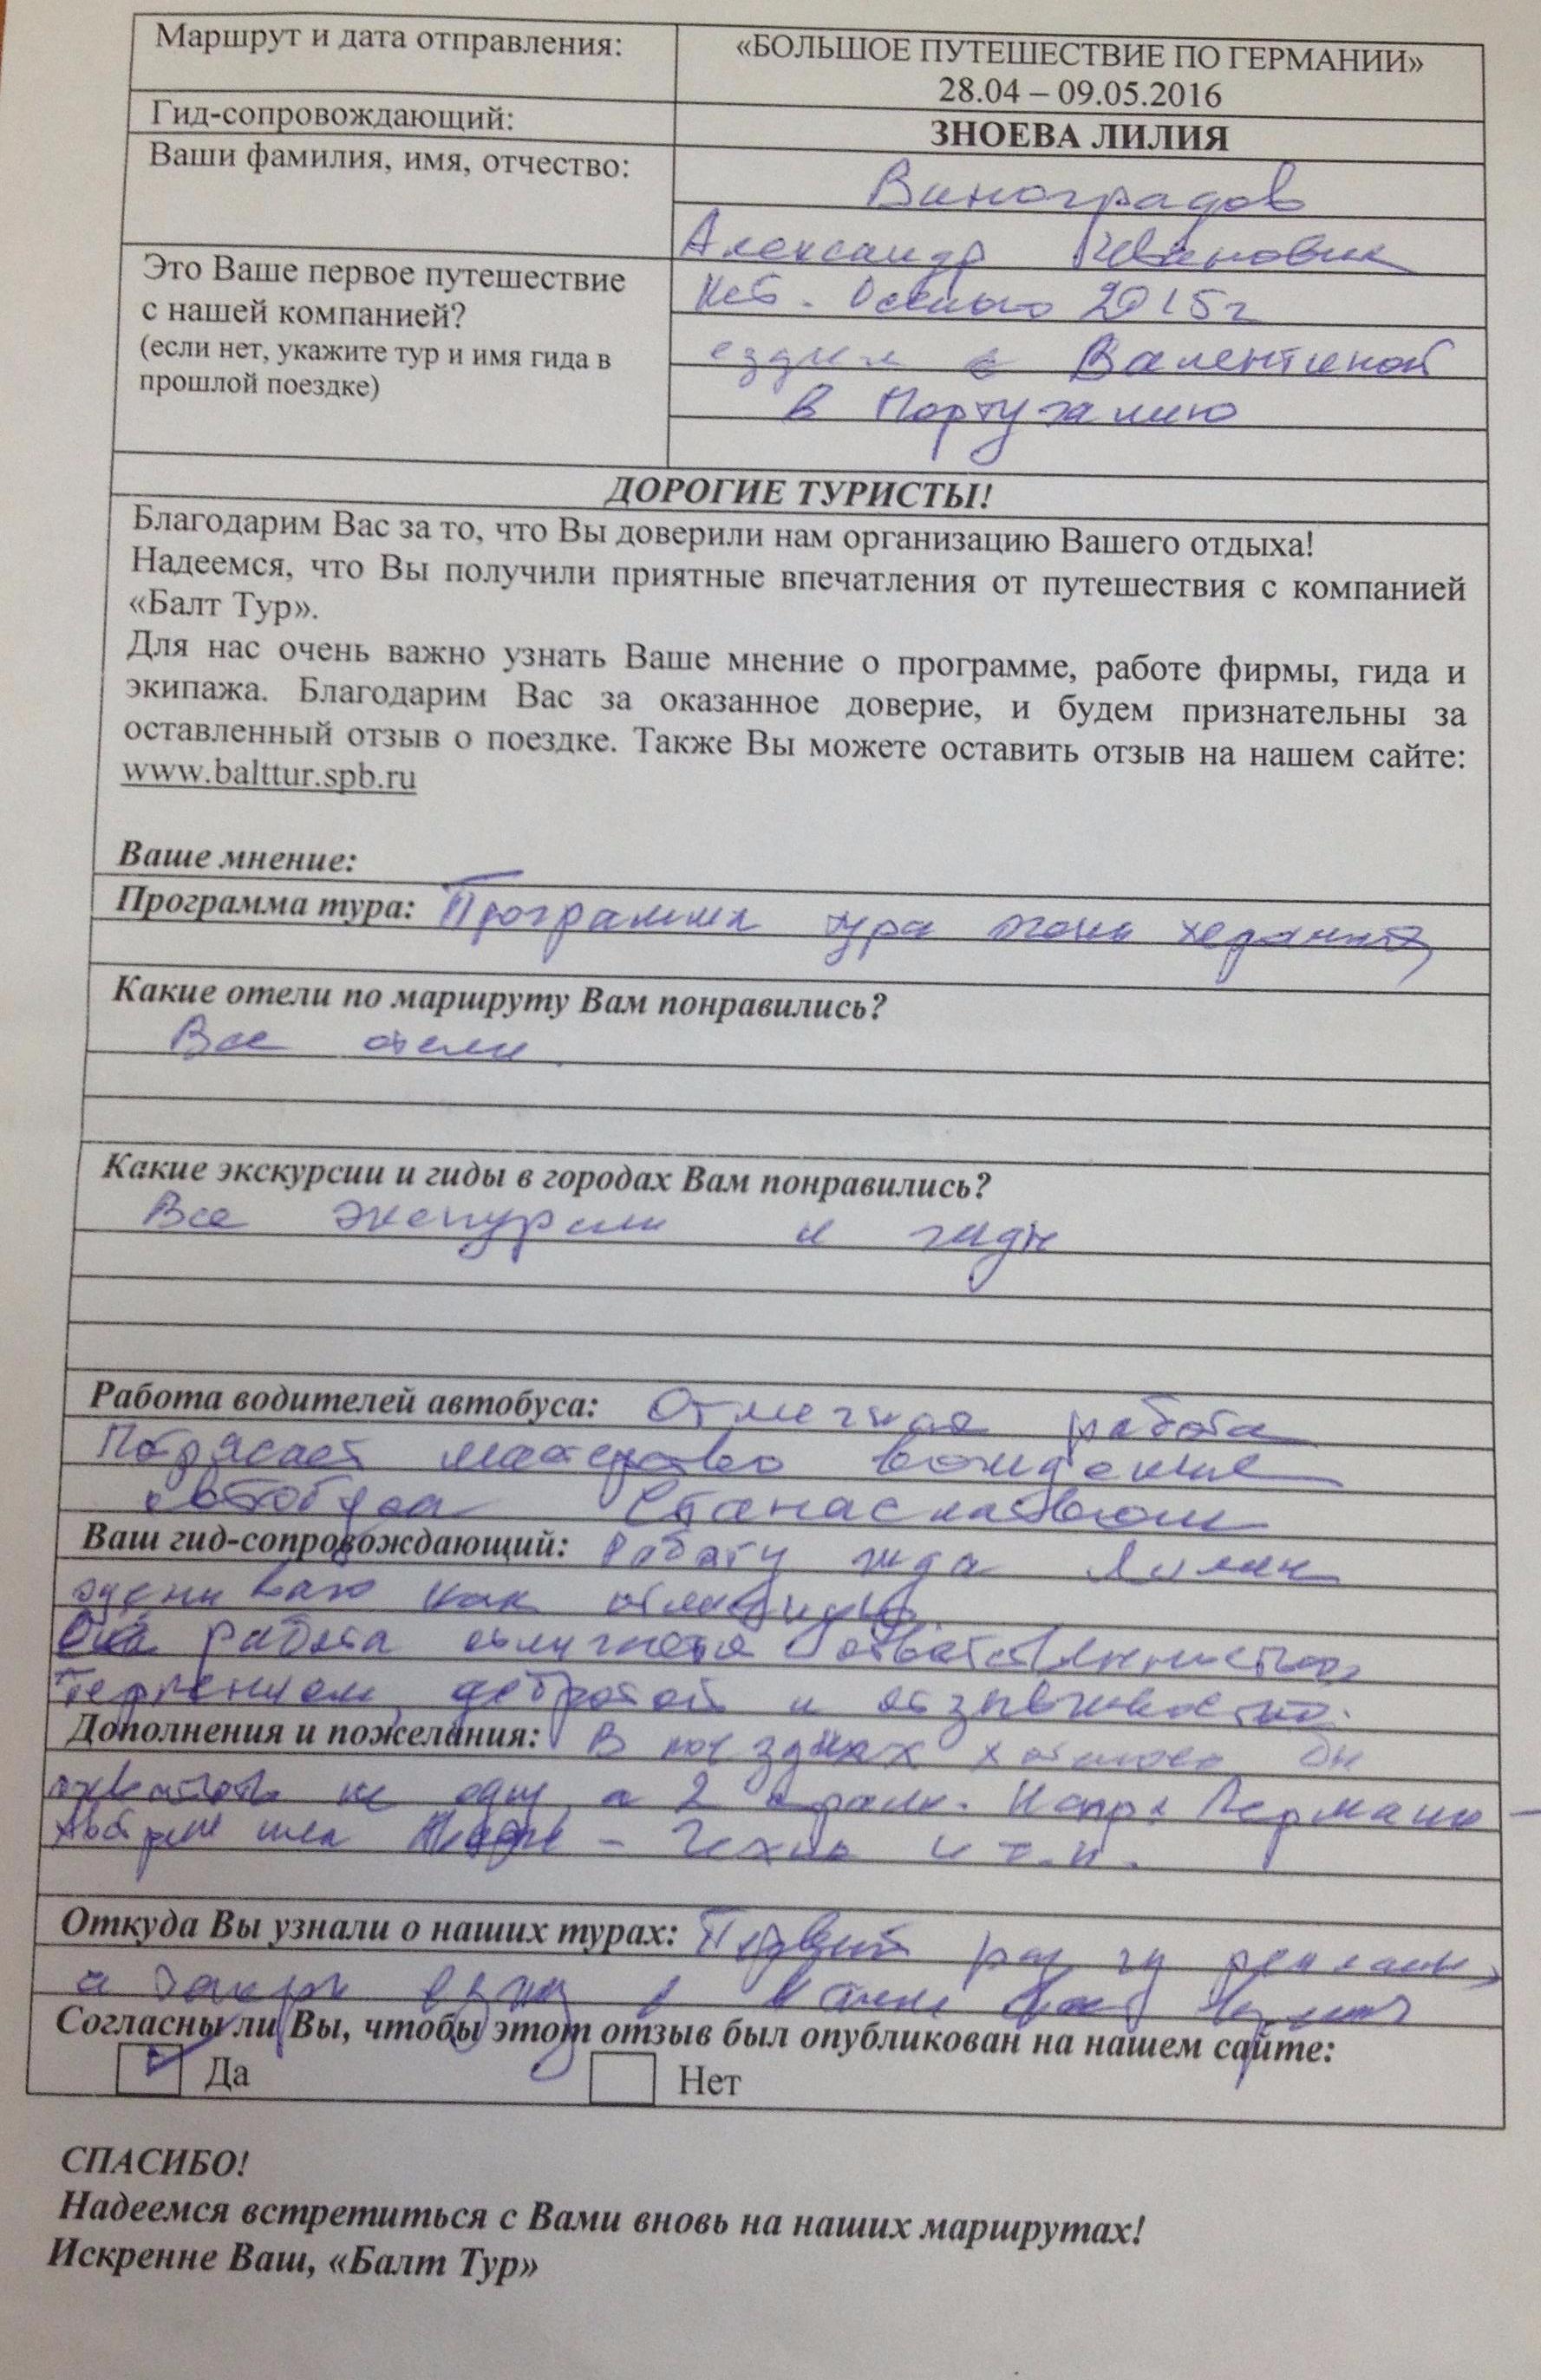 Маршрут и дата отправления:
«БОЛЬШОЕ ПУТЕШЕСТВИЕ ПО ГЕРМАНИИ»
28.04 – 09.05.2016
Гид-сопровождающий:
ЗНОЕВА ЛИЛИЯ
Ваши фамилия, имя, отчество:
Виноградов
Александр Иванович
Это Ваше первое путешествие
с нашей компанией?
(если нет, укажите тур и имя гида в
прошлой поездке)
Нет. Осенью 2015г
ездил с Валентиной
в Португалию
ДОРОГИЕ ТУРИСТЫ!
Благодарим Вас за то, что Вы доверили нам организацию Вашего отдыха!
Надеемся, что Вы получили приятные впечатления от путешествия с компанией
«Балт Тур».
Для нас очень важно узнать Ваше мнение о программе, работе фирмы, гида и
экипажа. Благодарим Вас за оказанное доверие, и будем признательны за
оставленный отзыв о поездке. Также Вы можете оставить отзыв на нашем сайте:
www.balttur.spb.ru
Ваше мнение:
Программа тура: Программа тура очень
Какие отели по маршруту Вам понравились?
Все отели.
Какие экскурсии и гиды в городах Вам понравились?
Все экскурсии и гиды
Работа водителей автобуса: Отличная работа
Потрясает мастерство вождения
автобуса
Ваш гид-сопровождающий: Работу гида Лилии
оцениваю как отличную.
работа отличается ответственностью,
терпением, добротой и отзывчивостью.
Дополнения и пожелания: В поездках хотелось бы
охватить не одну, а 2 страны. Напр. Германия –
Австрия или – Чехия и т.п.
Откуда Вы узнали о наших турах: Первый раз из рекламы,
а
Согласны ли Вы, чтобы этот отзыв был опубликован на нашем сайте:
Да Нет
СПАСИБО!
Надеемся встретиться с Вами вновь на наших маршрутах!
Искренне Ваш, «Балт Тур»